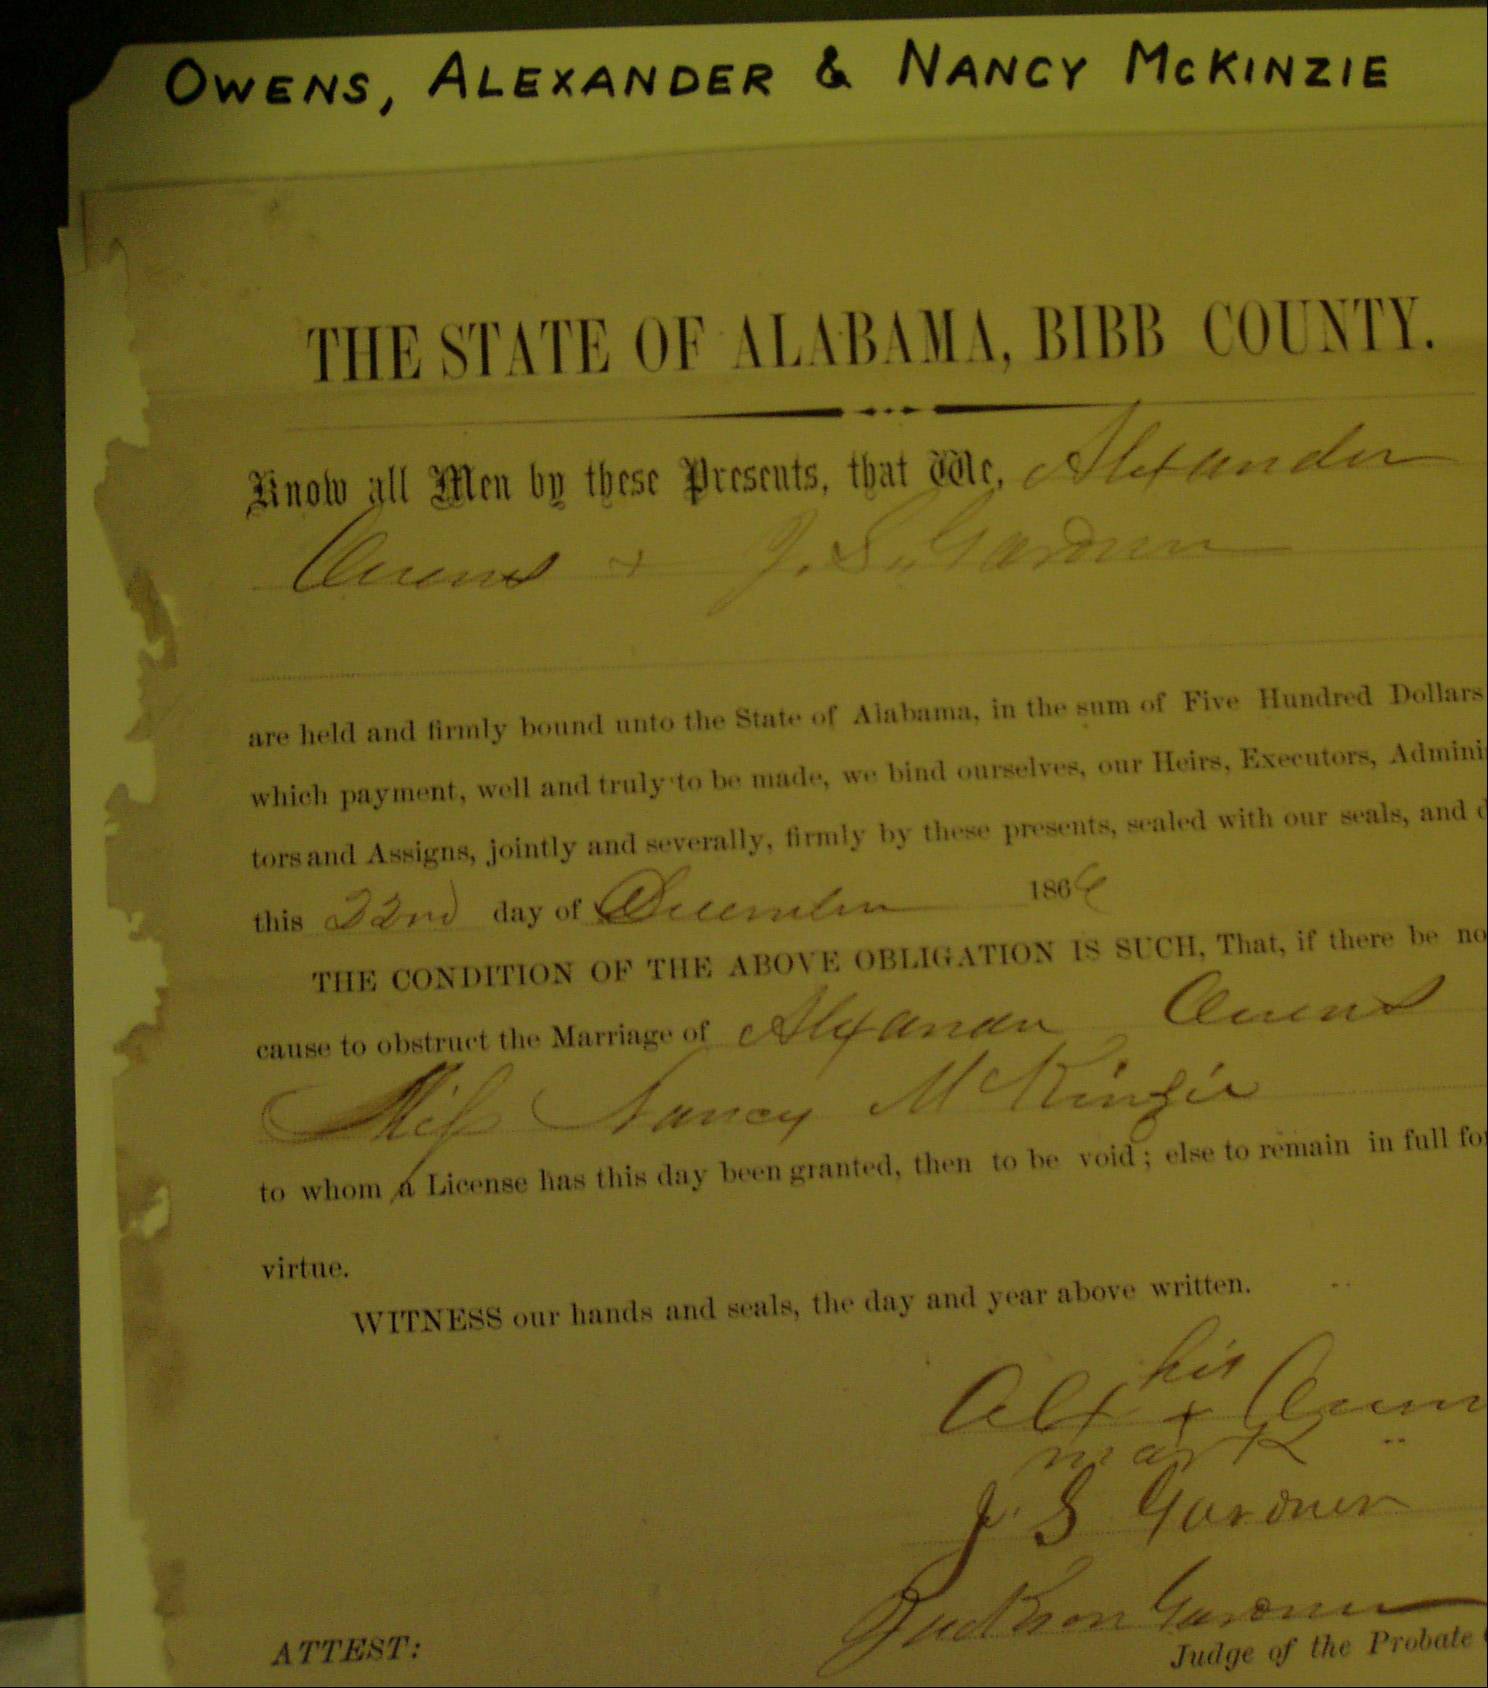 OWENS, ALEXANDER & NANCY MCKINZIE
THE STATE OF ALABAMA, BIBB COUNTY.
Know all Men by these Presents, that We, Alexander
Owens + J. S. Gardner
are held and firmly bound unto the State of Alabama, in the sum of Five Hundred Dollars
which payment, well and truly to be made, we bind ourselves, our Heirs, Executors, Admini
tors and Assigns, jointly and severally, firmly by these presents, sealed with our seals, and d
this 22nd day of December 1866
THE CONDITION OF THE ABOVE OBLIGATION IS SUCH, That, if there be no
cause to obstruct the Marriage of Alexander Owens
Miss Nancy McKinzie
to whom a License has this day been granted, then to be void; else to remain in full for
virtue.
WITNESS our hands and seals, the day and year above written.
his
Alex + Owens
mark
J. S Gardner
Jackson Gardner
ATTEST: Judge of the Probate